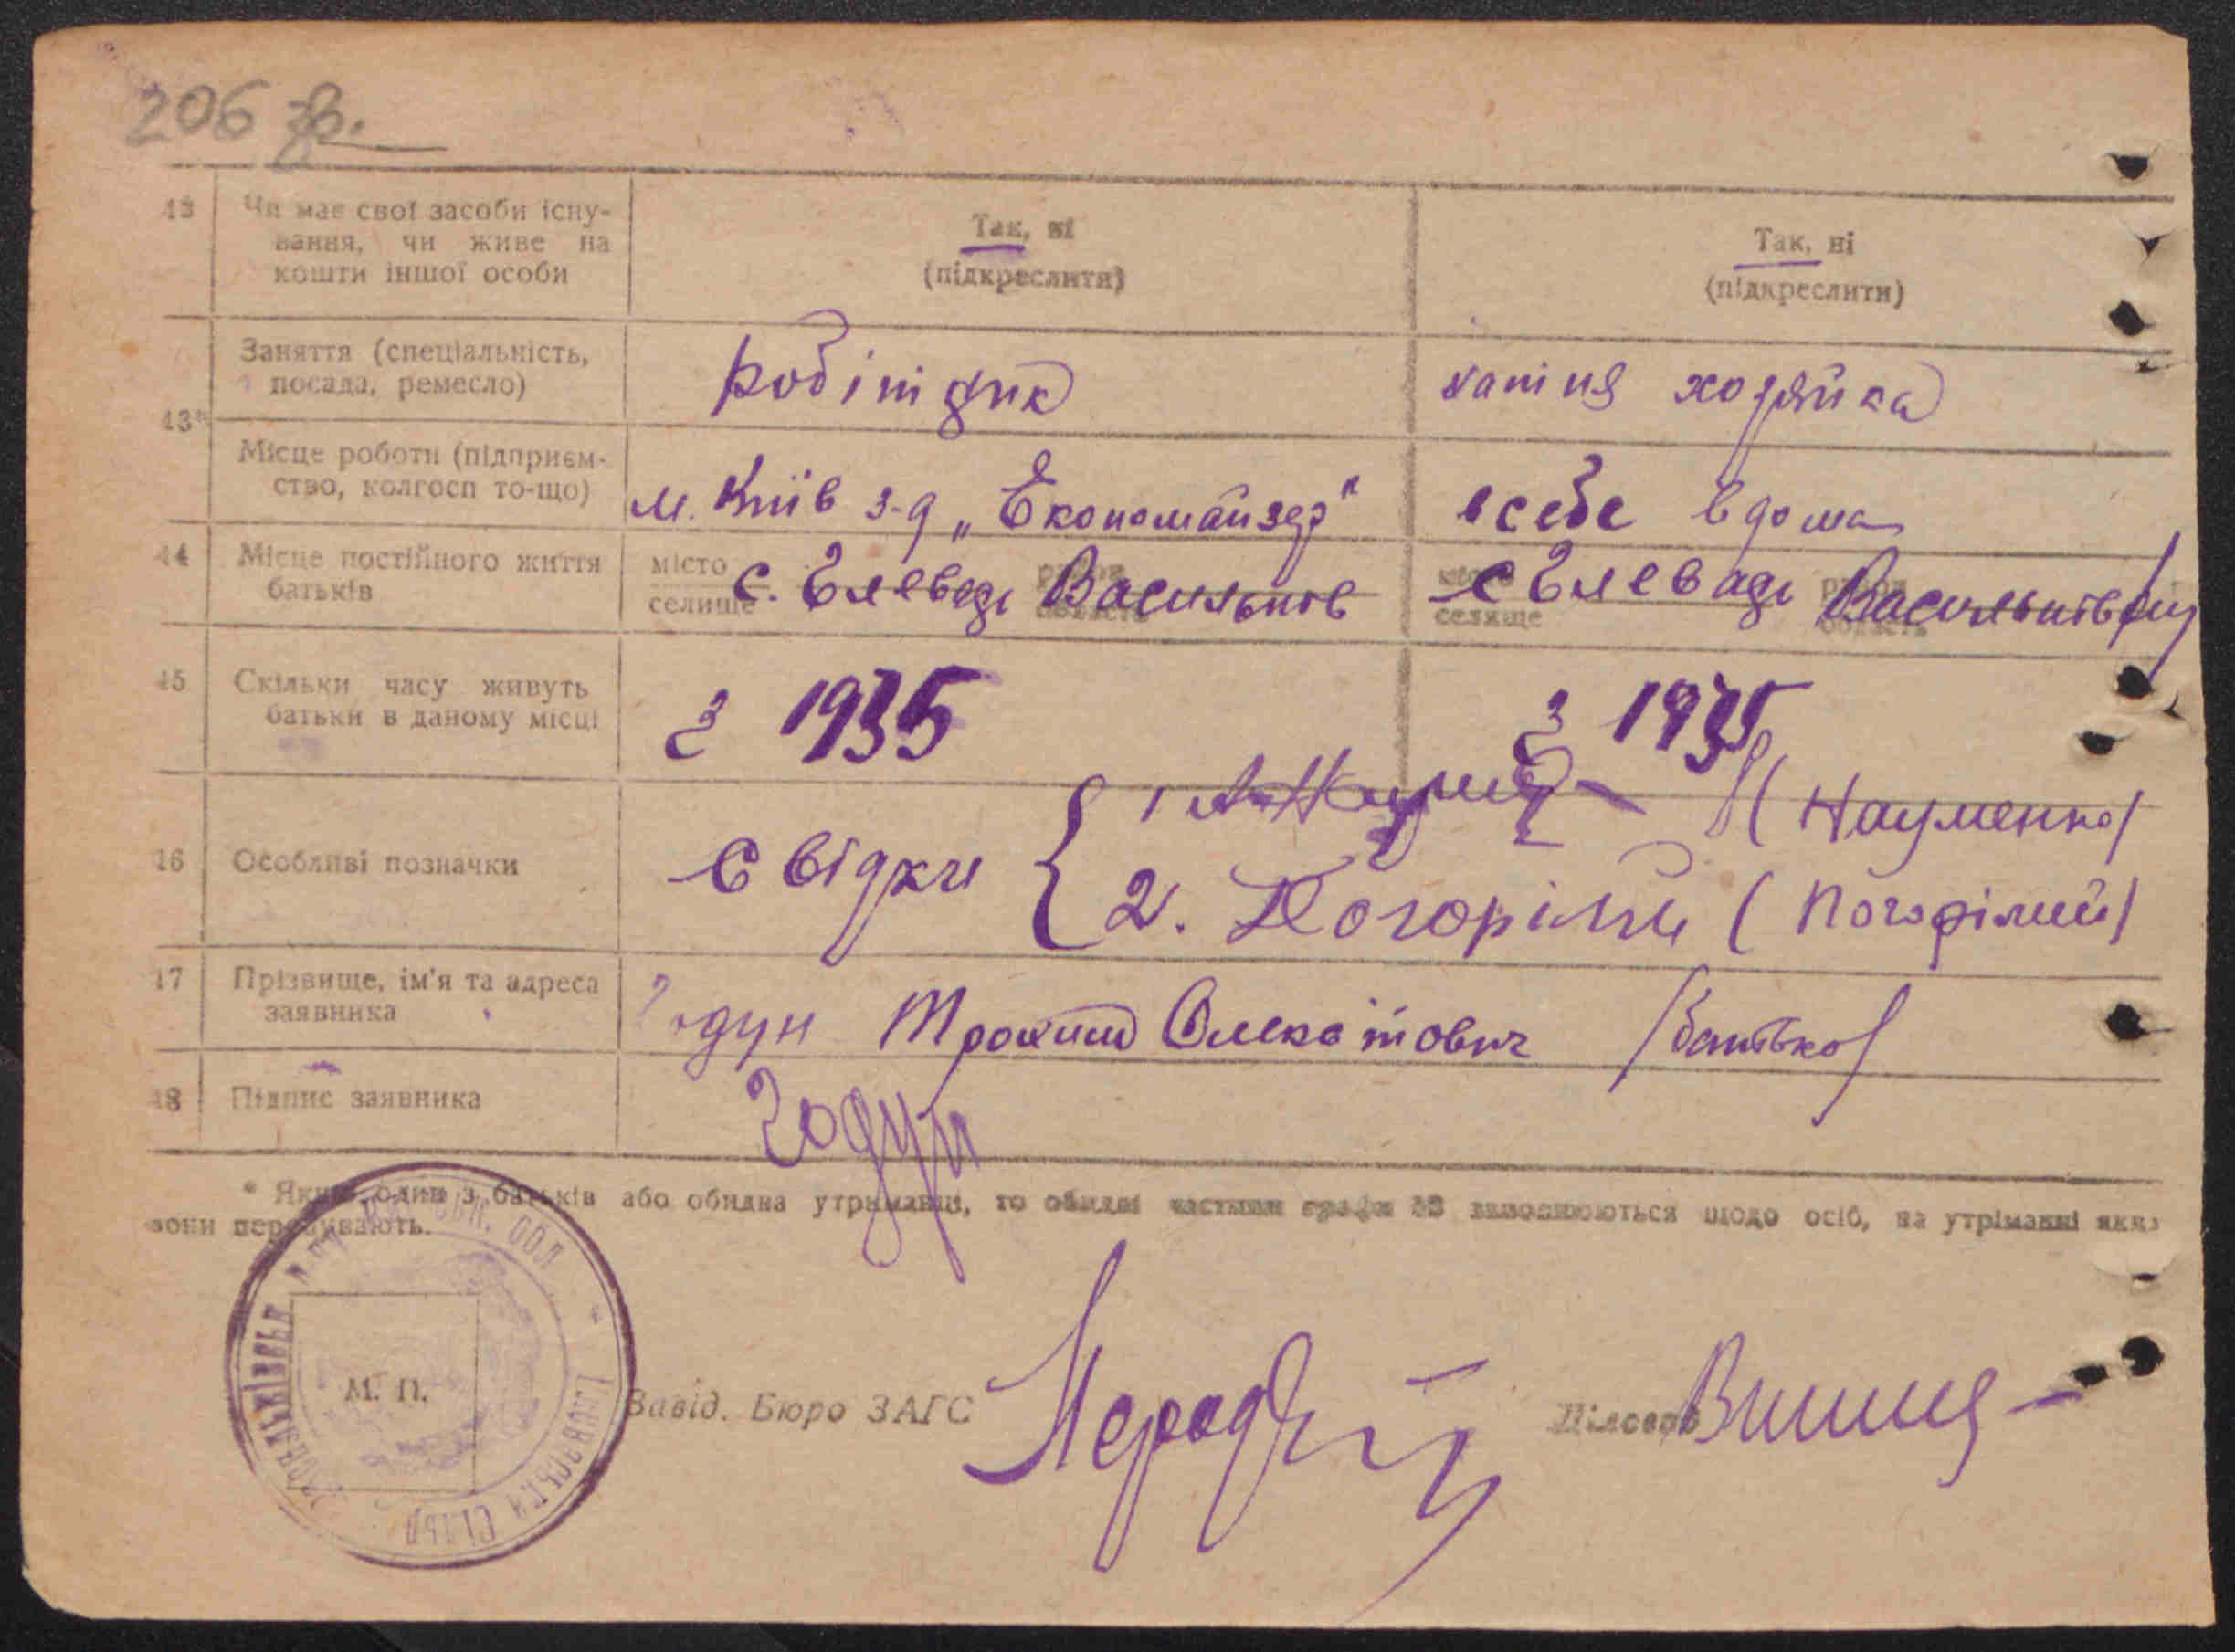 206 зв.
13 Чи має свої засоби існу-
вання, чи живе на
кошти іншої особи
Так, ні
(підкреслити)
Так, ні
(підкреслити)
13*
Заняття (спеціальність,
посада, ремесло)
робітник
хатня хозяйка
Місце роботи (підприєм-
ство, колгосп то-що)
м. Київ з-д „Економайзер"
в себе вдома
14 Місце постійного життя
батьків
місто
селище
район
область
с. Елевади Васильків
місто
селище
район
область
с Елевади Васильків
15 Скільки часу живуть
батьки в даному місці
з 1935
з 1935
16 Особливі позначки
Свідки
1
(Науменко)
2. Погорілий (Погорілий)
17 Прізвище, ім'я та адреса
заявника
Годун Трохим Олексійович /батько/
18 Підпис заявника
Годун
* Якщо один з батьків або обидва утриманці, то обидві частини графи 13 виповнюються щодо осіб, на утріманні яких
вони перебувають.
М. П.
Завід. Бюро ЗАГС
Діловод